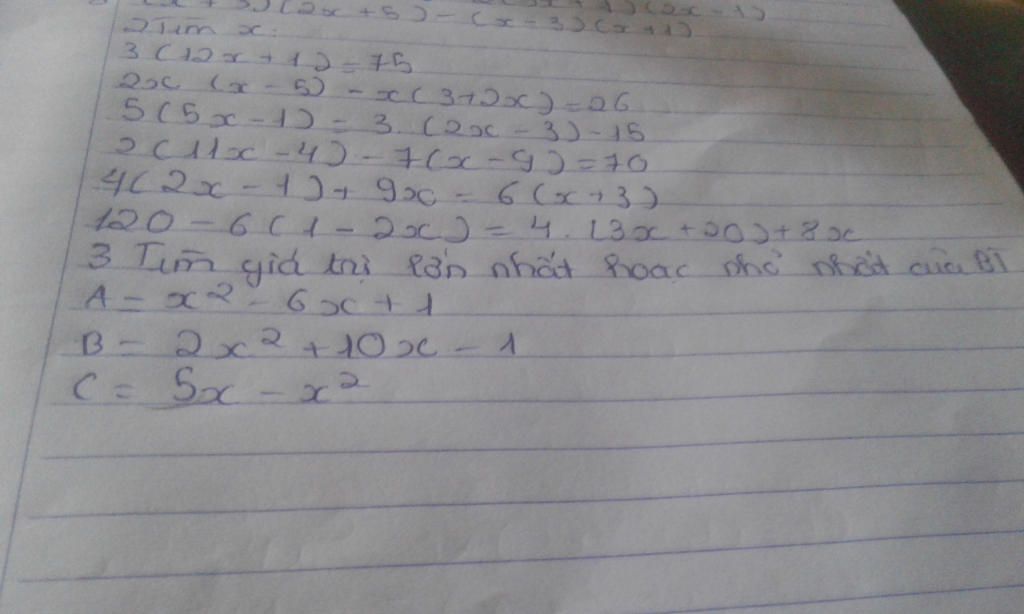 (2x + 5) - (x - 3)(x + 1) (2x - 1)
2 Tìm x:
3(12x + 1) = 75
2x (x - 5) - x(3+2x) = 26
5(5x - 1) = 3.(2x - 3) - 15
2(11x - 4) - 7(x - 9) = 70
4(2x - 1) + 9x = 6(x+3)
120 - 6(1 - 2x) = 4.(3x + 20) + 8x
3 Tìm giá trị lớn nhất hoặc nhỏ nhất của BT
A = x² - 6x + 1
B = 2x² + 10x - 1
C = 5x - x²